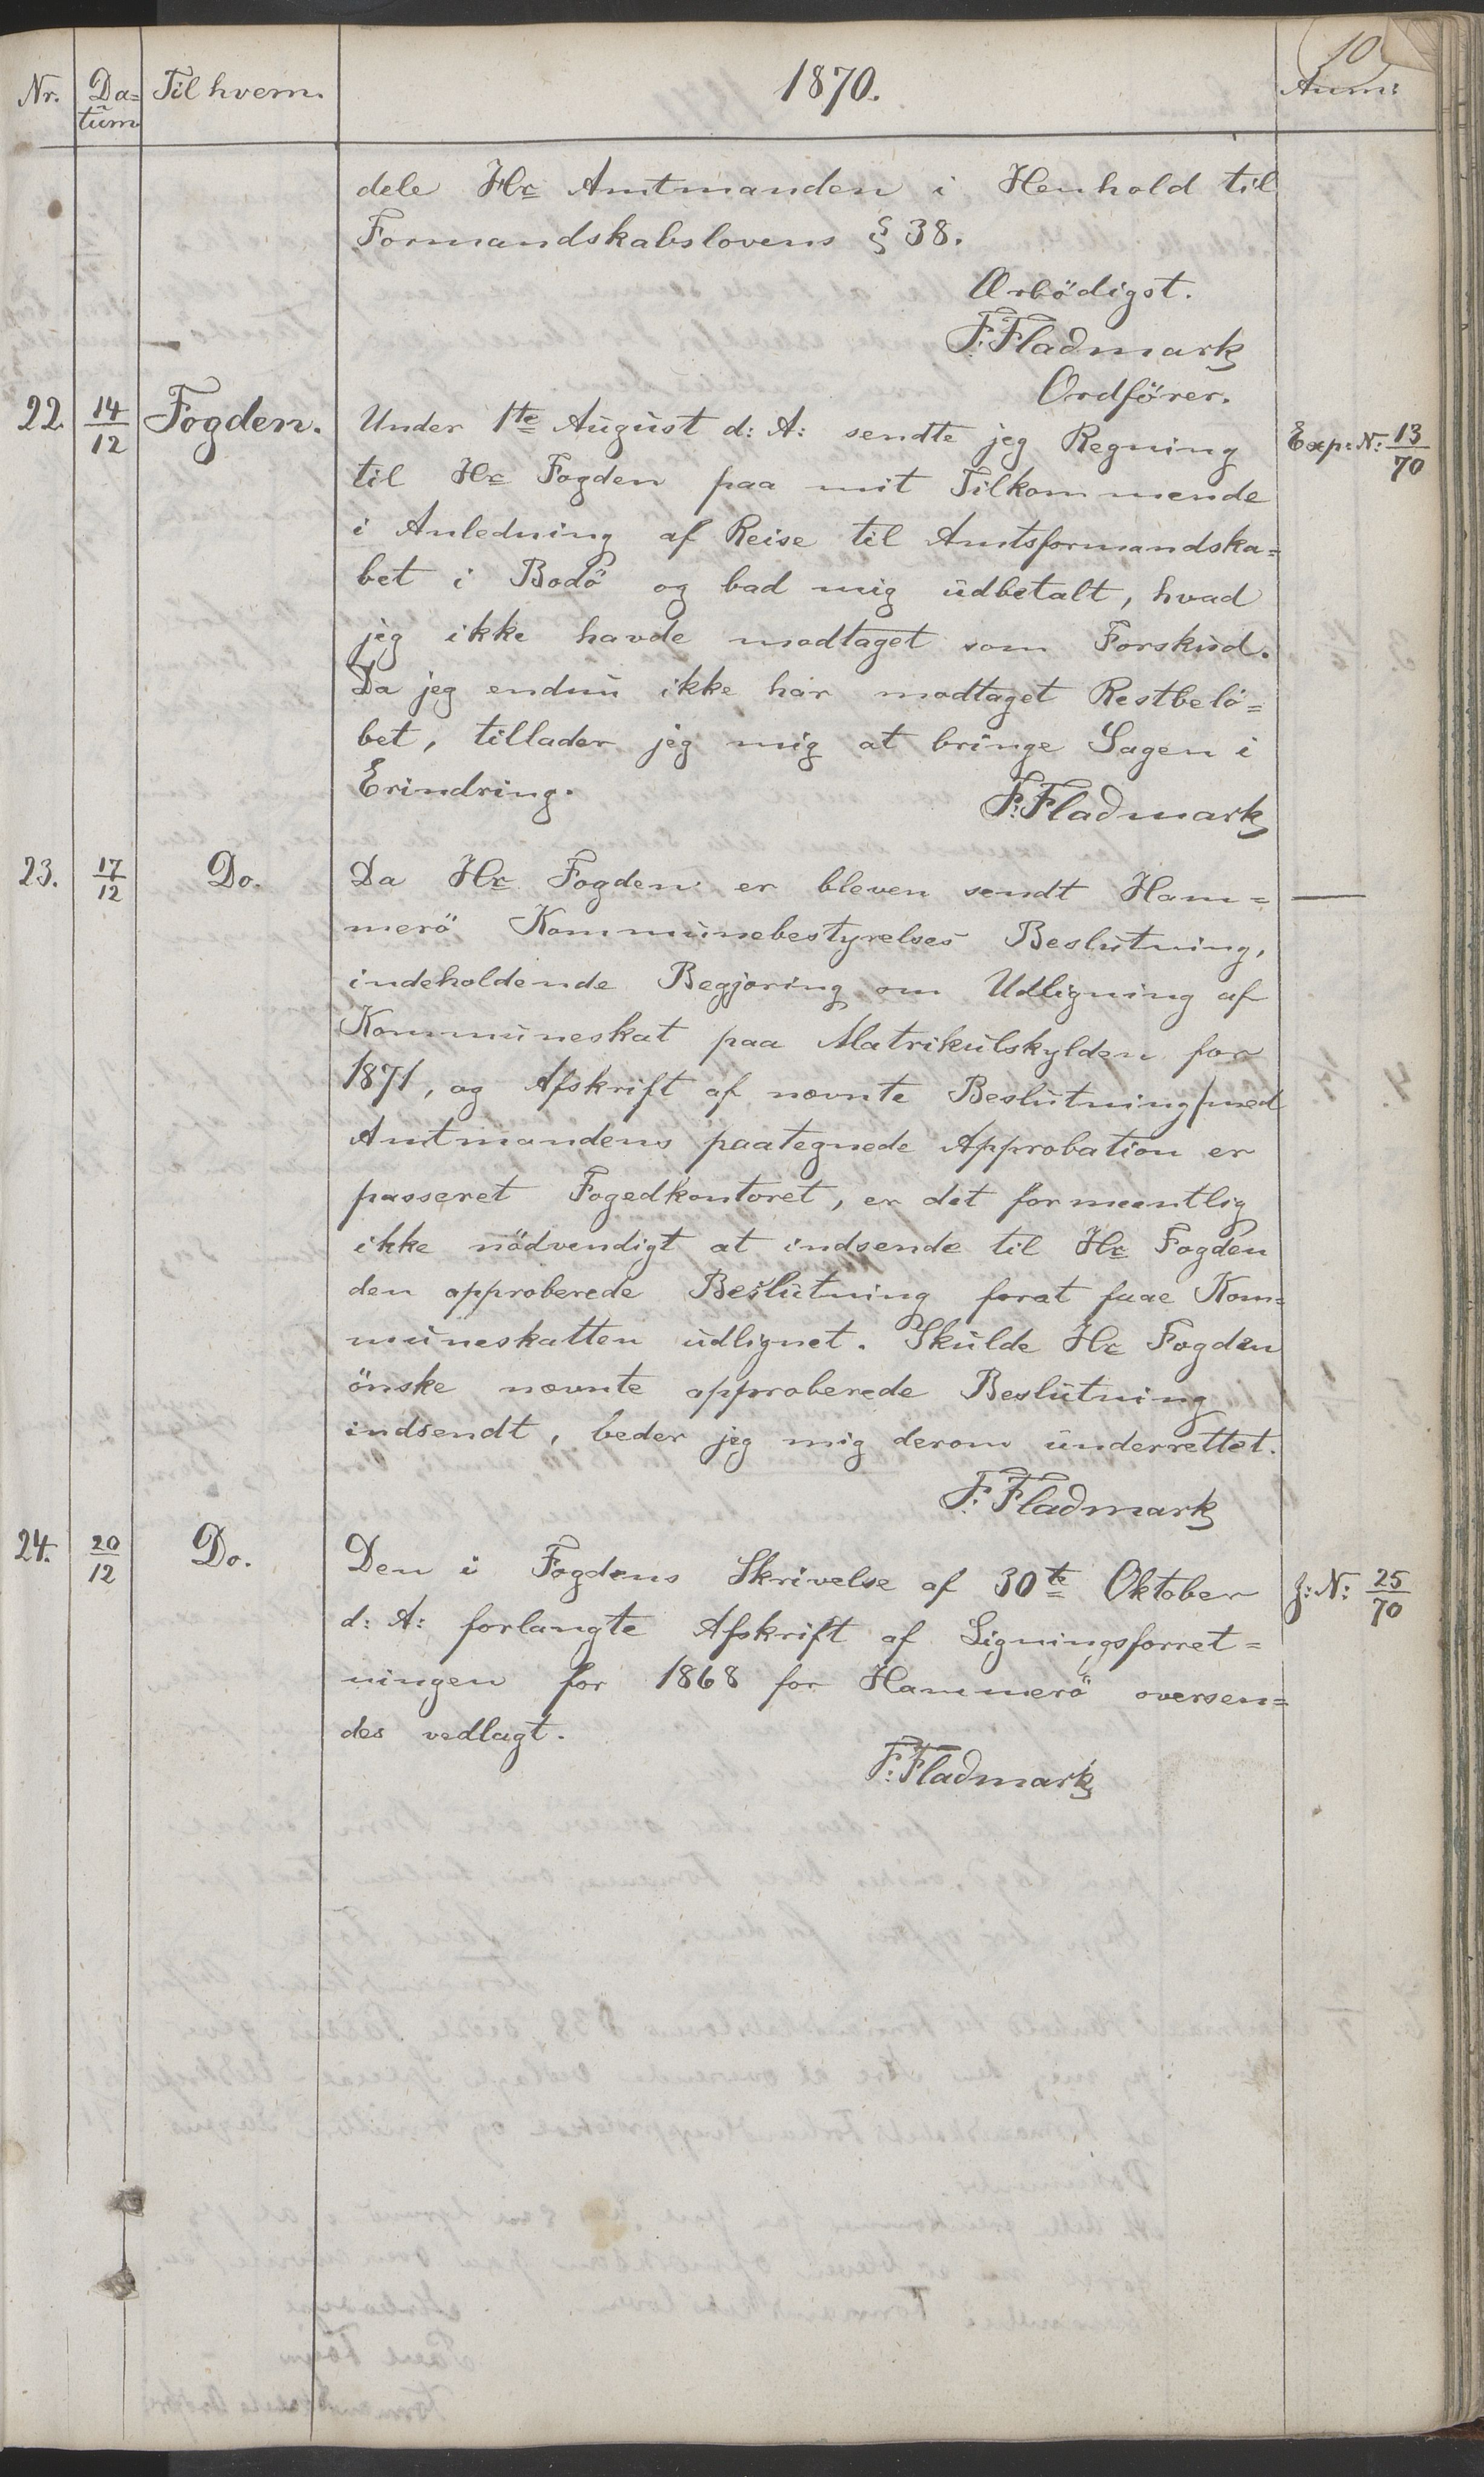 10
Nr. Da= Til hvem. 1870. Anm:
tum
dele Hr Amtmanden i Henhold til
Formandskabslovens § 38.
Ærbödigst.
F. Fladmark
Ordförer.
22. 14/12 Fogden. Under 1te August d: A: sendte jeg Regning Exp: N: 13/70
til Hr Fogden paa mit Tilkommende
i Anledning af Reise til Amtsformandska=
bet i Bodö og bad mig udbetalt, hvad
jeg ikke havde modtaget som Forskud.
Da jeg endnu ikke har modtaget Restbelö=
bet, tillader jeg mig at bringe Sagen i
Erindring.
F. Fladmark
23. 17/12 Do. Da Hr Fogden er bleven sendt Ham= —
merö Kommunebestyrelses Beslutning,
indeholdende Begjæring om Udligning af
Kommuneskat paa Matrikulskylden for
1871, og Afskrift af nævnte Beslutning med
Amtmandens paategnede Approbation er
passeret Fogedkontoret, er det formeentlig
ikke nödvendigt at indsende til Hr Fogden
den approberede Beslutning forat faae Kom=
muneskatten udlignet. Skulde Hr Fogden
önske nævnte approberede Beslutning
indsendt, beder jeg mig derom underrettet.
F. Fladmark
24. 20/12 Do. Den i Fogdens Skrivelse af 30te Oktober J: N: 25/70
d: A: forlangte Afskrift af Ligningsforret=
ningen for 1868 for Hammerö oversen=
des vedlagt.
F. Fladmark